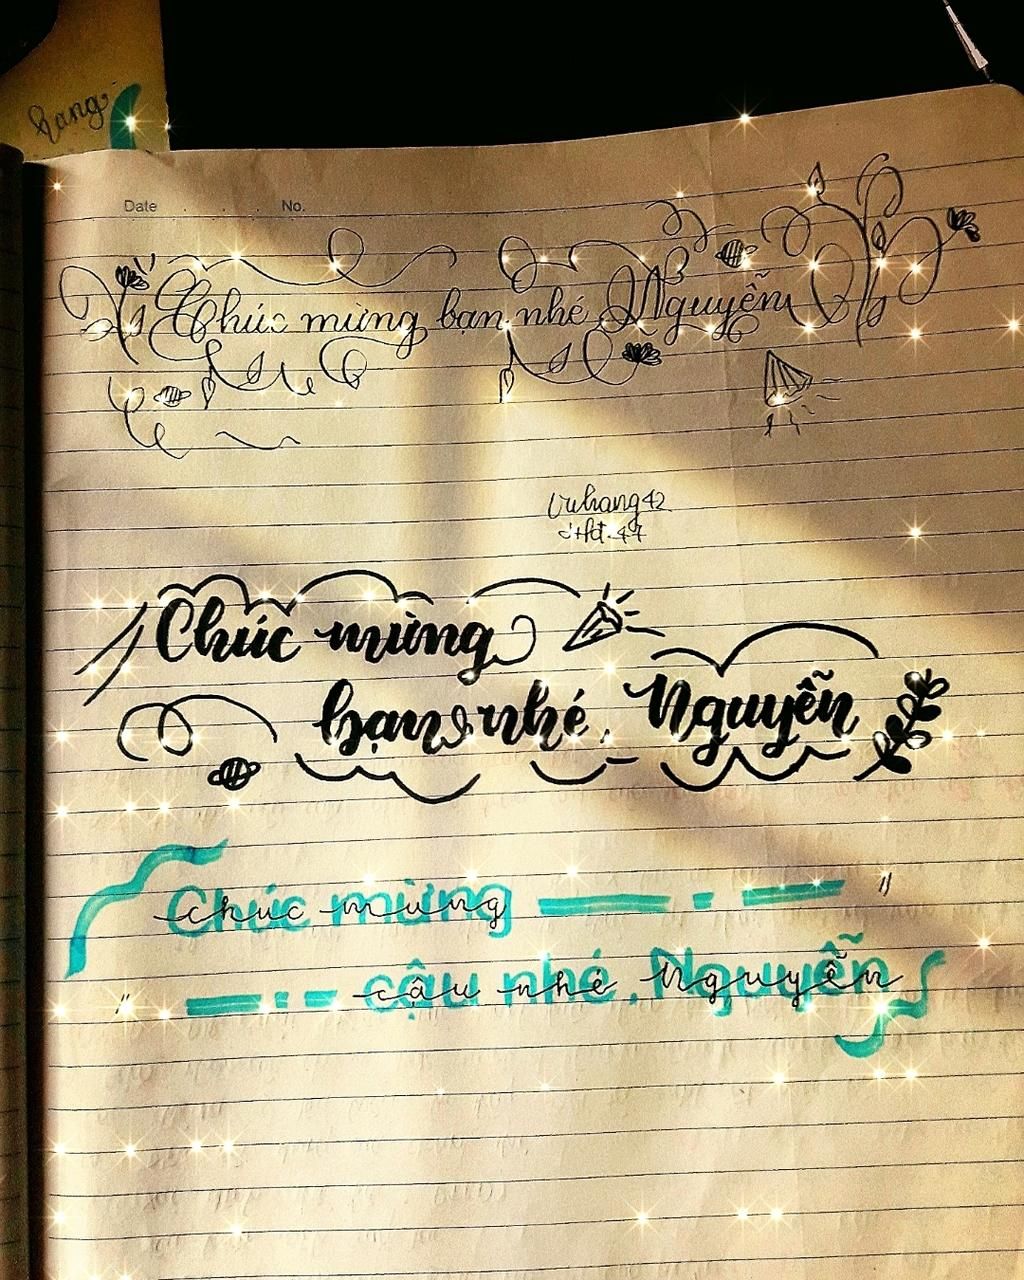 hang
Date No.
Chúc mừng bạn nhé Nguyễn
Chúc mừng
bạn nhé, Nguyễn
Chúc mừng
cậu nhé, Nguyễn